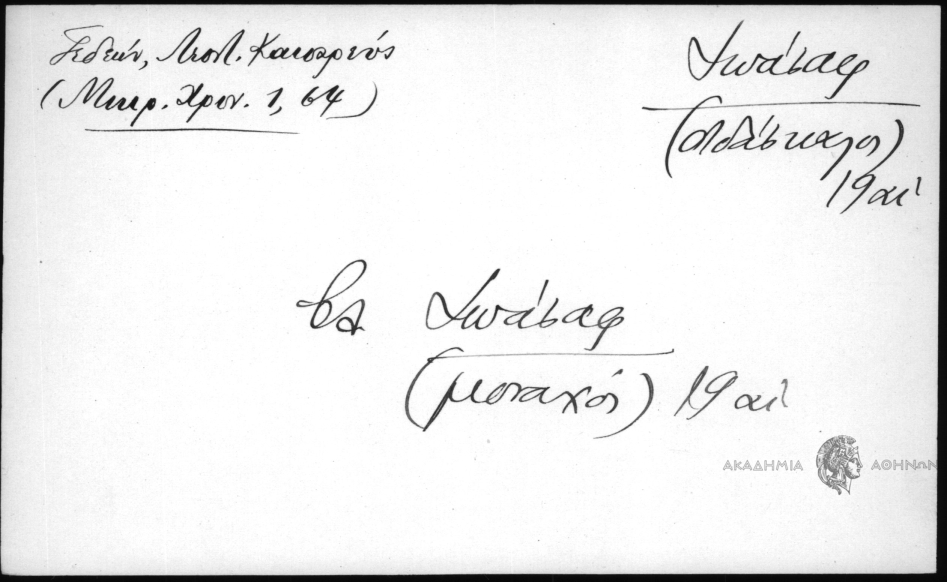 Γεδεών, Λεοντ. Καισαρεύς
(Μικρ. Χρον. 1, 64)
Ἰωάσαφ
(διδάσκαλος)
19 αἰ
βλ Ἰωάσαφ
(μοναχός) 19 αἰ
ΑΚΑΔΗΜΙΑ ΑΘΗΝΩΝ